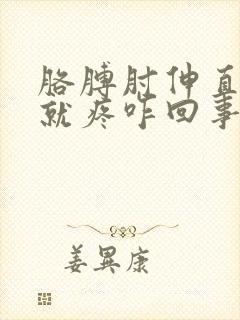 胳膊肘伸直
就疼咋回事
姜異康